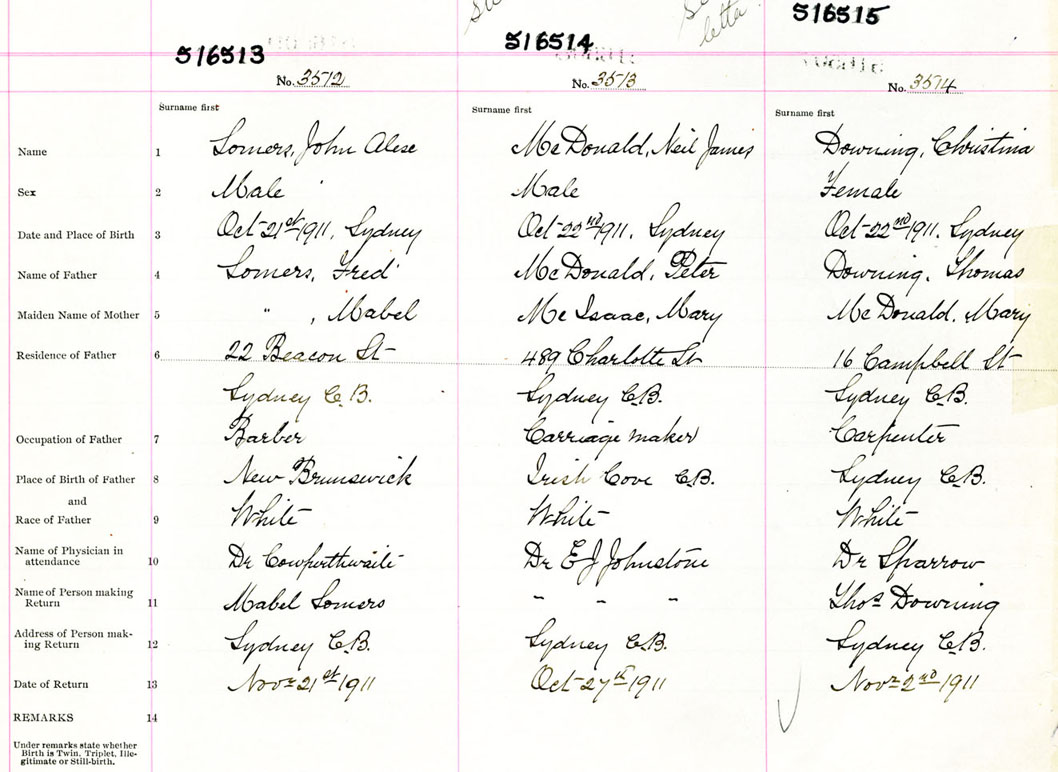 516513
516514
516515
No. 3512
No. 3513
No. 3514
Surname first
Surname first
Surname first
Name 1 Somers, John Alese McDonald, Neil James Downing, Christina
Sex 2 Male Male Female
Date and Place of Birth 3 Oct 21st 1911, Sydney Oct 22nd 1911. Sydney Oct 22nd 1911. Sydney
Name of Father 4 Somers, Fred McDonald, Peter Downing, Thomas
Maiden Name of Mother 5 " , Mabel McIsaac, Mary McDonald, Mary
Residence of Father 6 22 Beacon St 489 Charlotte St 16 Campbell St
Sydney C.B. Sydney C.B. Sydney C.B.
Occupation of Father 7 Barber Carriage maker Carpenter
Place of Birth of Father 8 New Brunswick Irish Cove C.B. Sydney C.B.
and
Race of Father 9 White White White
Name of Physician in
attendance 10 Dr Cowperthwaite Dr E J Johnstone Dr Sparrow
Name of Person making
Return 11 Mabel Somers " " " Thos Downing
Address of Person mak-
ing Return 12 Sydney C.B. Sydney C.B. Sydney C.B.
Date of Return 13 Novr 21st 1911 Oct 27th 1911 Novr 2nd 1911
REMARKS 14
Under remarks state whether
Birth is Twin, Triplet, Ille-
gitimate or Still-birth.